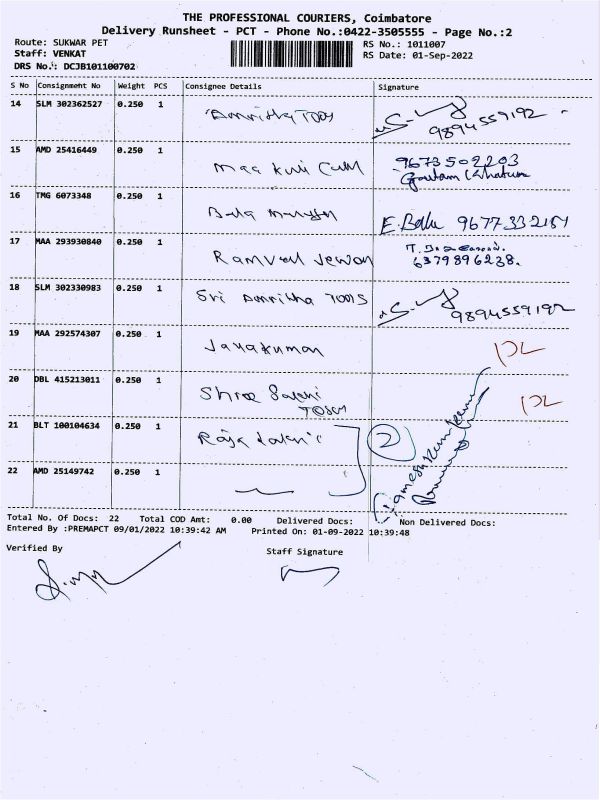 THE PROFESSIONAL COURIERS, Coimbatore
Delivery Runsheet - PCT - Phone No.:0422-3505555 - Page No.:2
Route: SUKWAR PET
Staff: VENKAT
DRS No.: DCJB101100702
RS No.: 1011007
RS Date: 01-Sep-2022
S No Consignment No Weight PCS Consignee Details Signature
14 SLM 302362527 0.250 1 Amritha TOOS 9894559192
15 AMD 25416449 0.250 1 Maa 9673502203
Goutam
16 TMG 6073348 0.250 1 Bala E. Balu
17 MAA 293930840 0.250 1 Ramvel Jewan
6379896238.
18 SLM 302330983 0.250 1 Sri Amritha TOOS 9894559192
19 MAA 292574307 0.250 1 Jayakumar
20 DBL 415213011 0.250 1 Shree
21 BLT 100104634 0.250 1 Raja 2
22 AMD 25149742 0.250 1
Total No. Of Docs: 22 Total COD Amt: 0.00 Delivered Docs: Non Delivered Docs:
Entered By :PREMAPCT 09/01/2022 10:39:42 AM Printed On: 01-09-2022 10:39:48
Verified By
Staff Signature